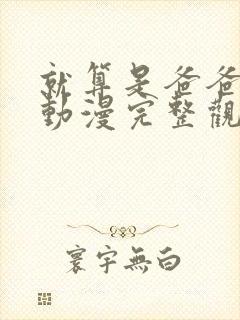 就算是爸爸
動漫完整觀
寰宇無白